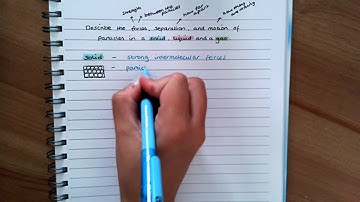 strength
between the particles
how far apart
how many
Describe the forces, separation, and motion of
Particles in a solid, liquid and a gas.
solid - strong intermolecular forces
- partic